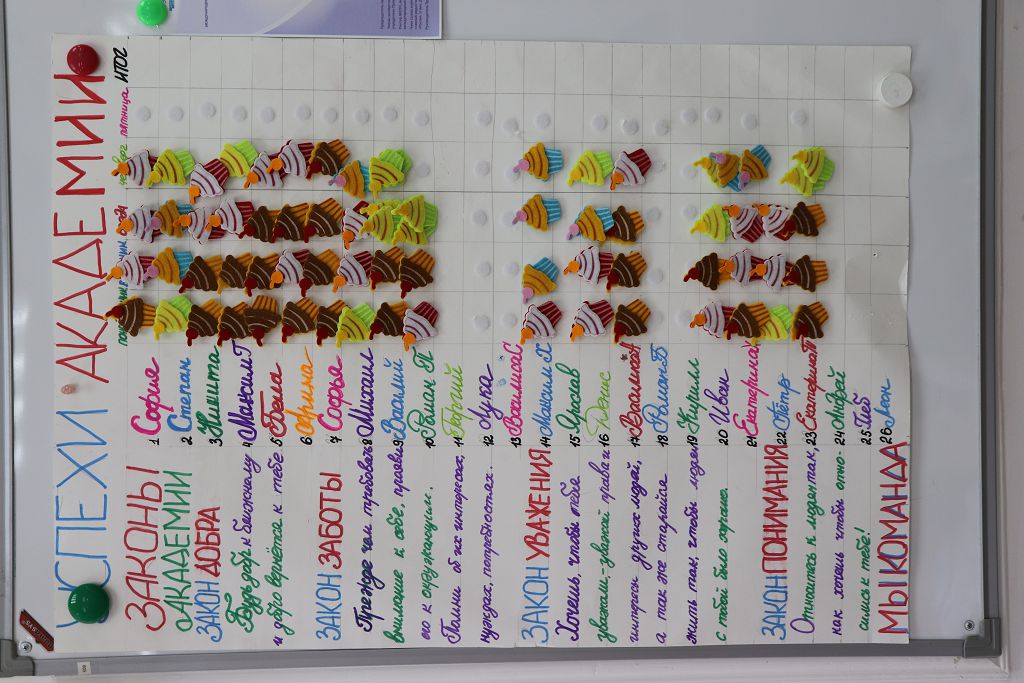 УСПЕХИ АКАДЕМИИ
ЗАКОНЫ
АКАДЕМИИ
ЗАКОН ДОБРА
Будь добр к ближнему
и добро вернётся к тебе.
ЗАКОН ЗАБОТЫ
Прежде чем требовать
внимание к себе, прояви
его к окружающим.
Помни об их интересах,
нуждах, потребностях.
ЗАКОН УВАЖЕНИЯ
Хочешь, чтобы тебя
уважали-уважай права и
интересы других людей,
а так же старайся
жить так, чтобы людям
с тобой было хорошо.
ЗАКОН ПОНИМАНИЯ
Относитесь к людям так,
как хочешь чтобы отно-
сились к тебе!
МЫ КОМАНДА
пятница ИТОГ
1 София
2 Степан
3 Никита
4 Максим Г
5 Белла
6 Арина
7 Софья
8 Михаил
9 Василий
10 Роман П
11 Георгий
12 Лука
13 Василиса С
14 Максим Х
15 Ярослав
16 Денис
17 Василиса
18 Роман Б
19 Кирилл
20 Иван
21 Екатерина
22 Пётр
23 Екатерина П
24 Андрей
25 Глеб
26 Леон